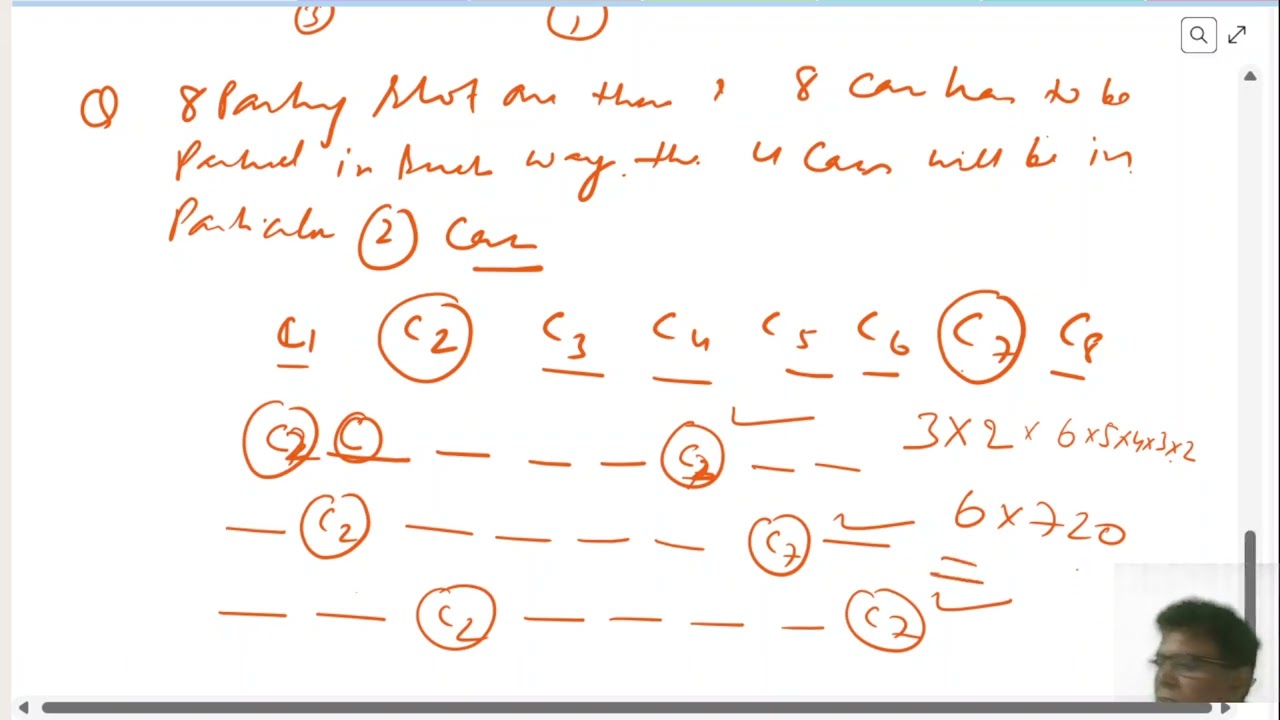 ③ ①
Q 8 Parking slot are there & 8 car has to be
Parked in such way. the 4 Cars will be in
Particular ② Cars
C1 C2 C3 C4 C5 C6 C7 C8
C2 C C7 3 × 2 × 6 × 5 × 4 × 3 × 2
C2 C7 6 × 720
C2 C7